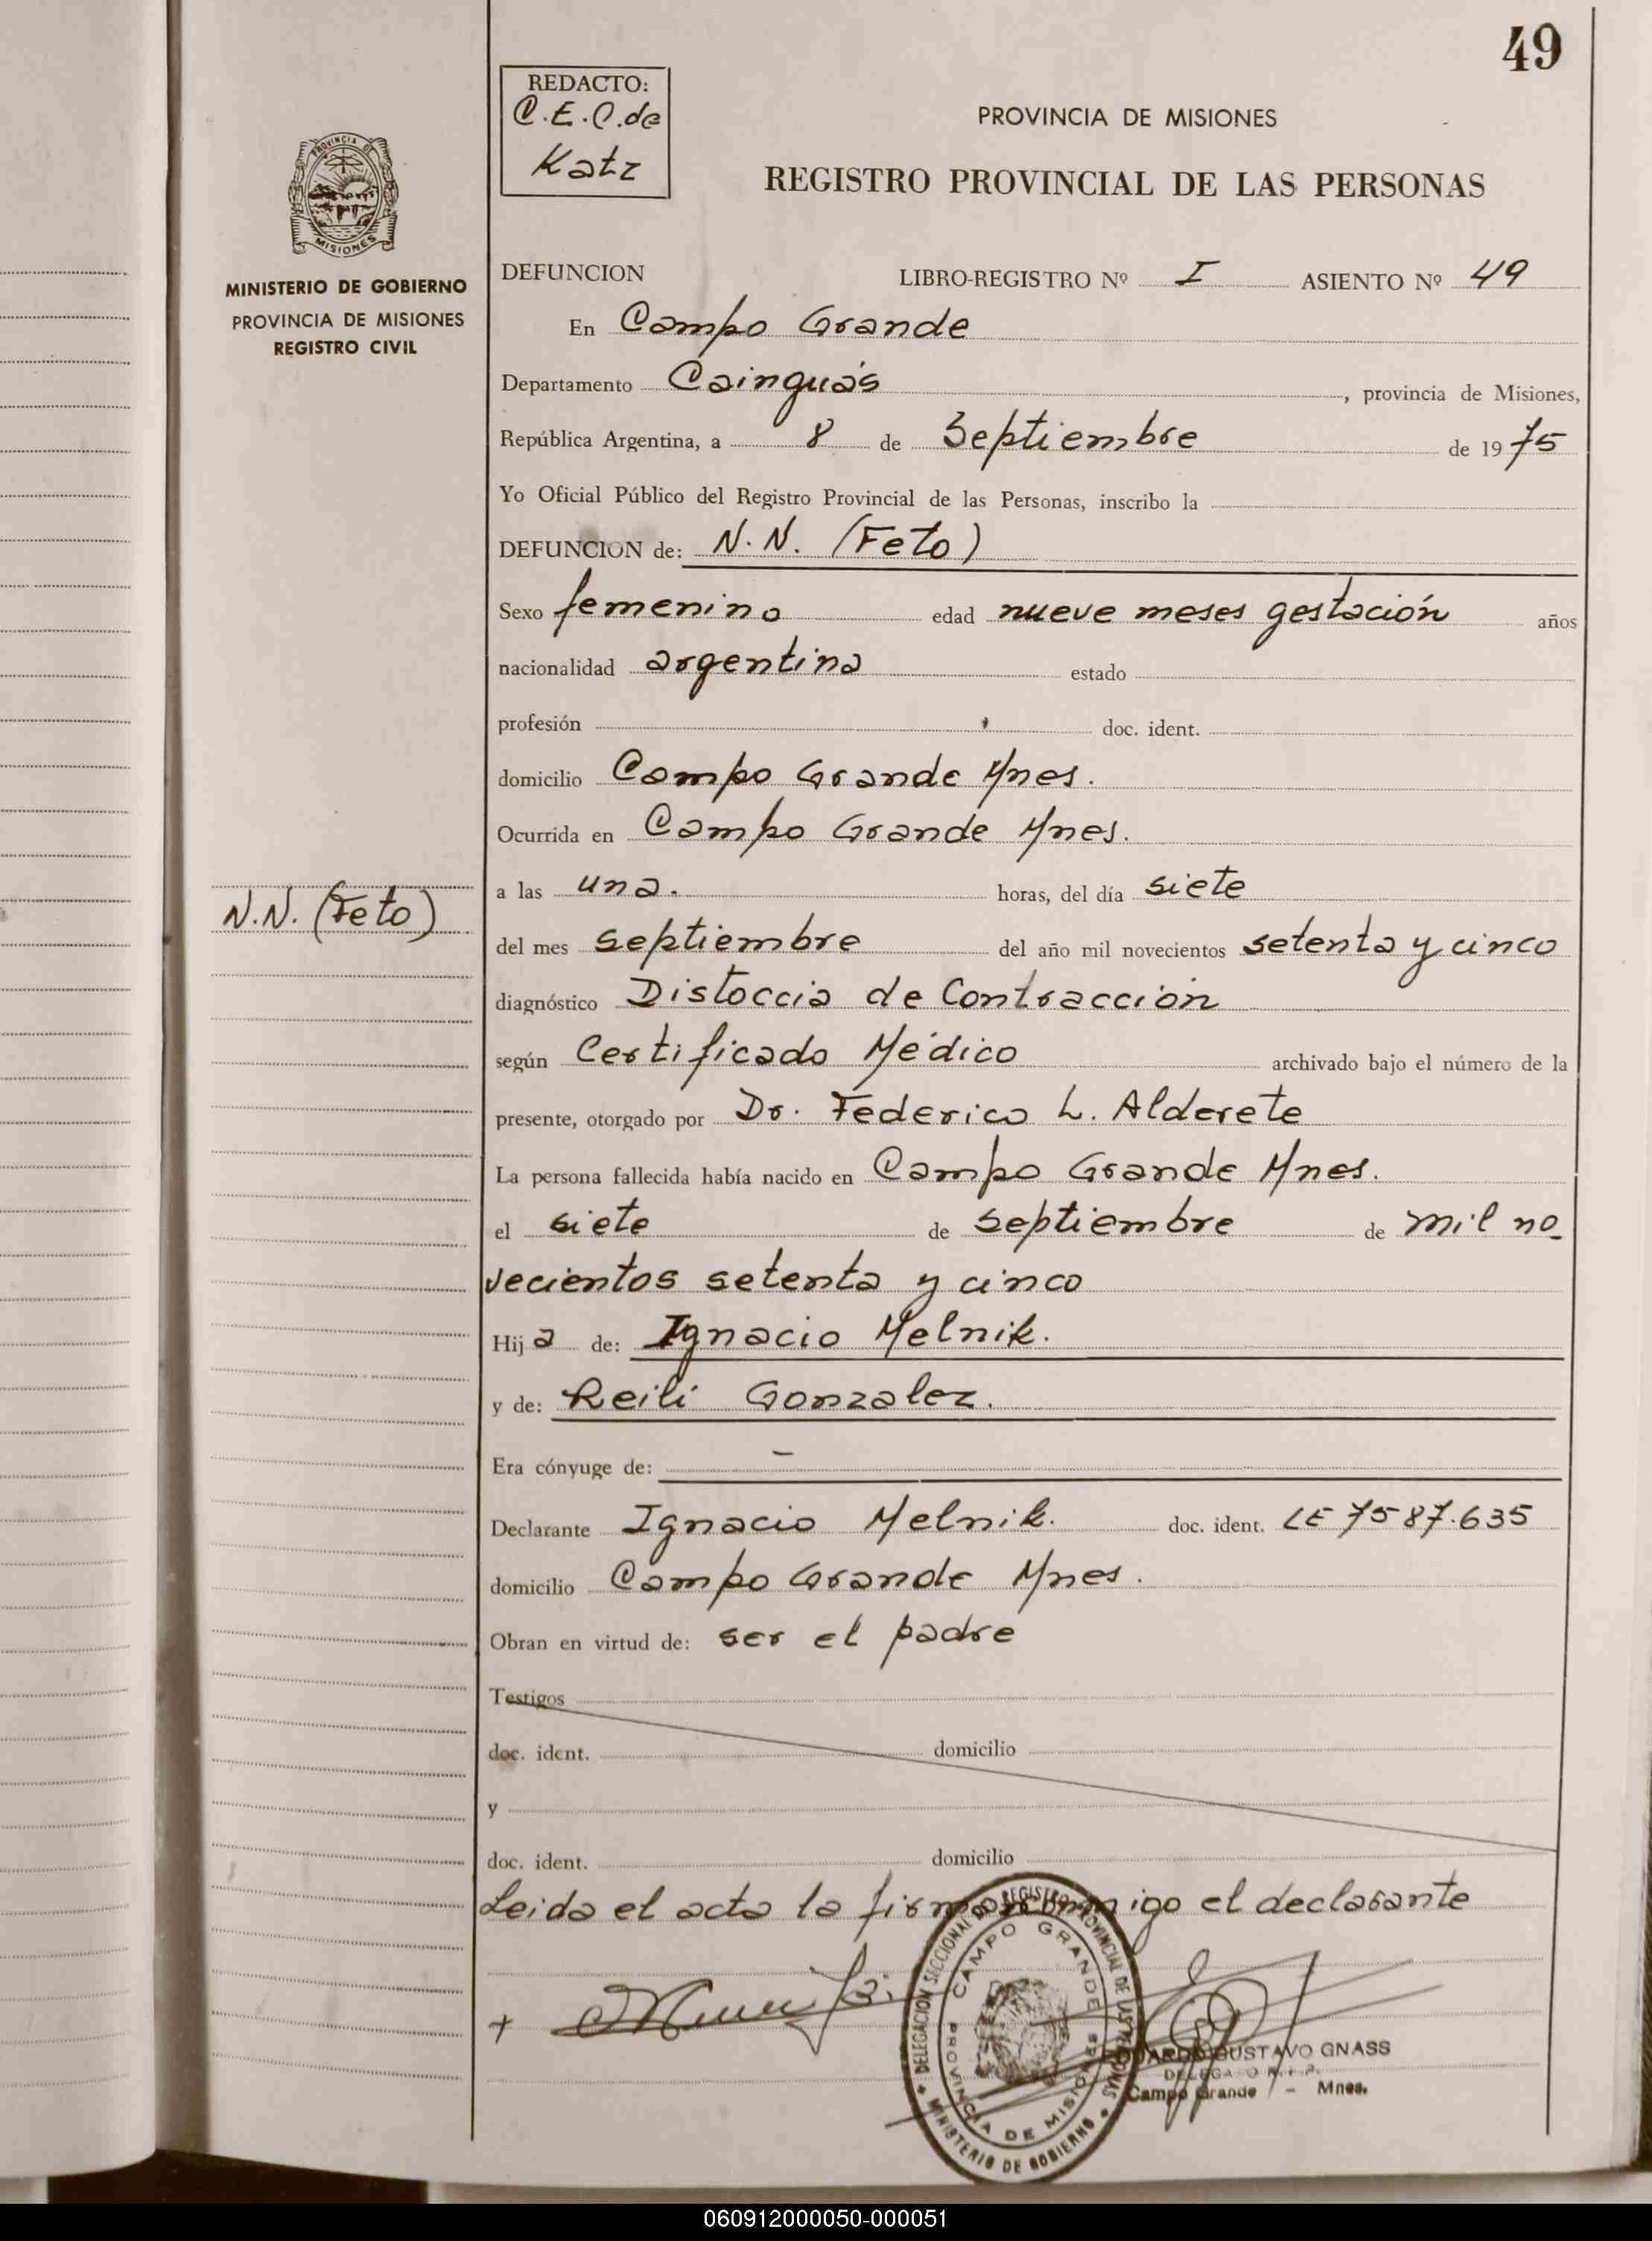 49
REDACTO:
C.E.C.de
Katz
PROVINCIA DE MISIONES
REGISTRO PROVINCIAL DE LAS PERSONAS
PROVINCIA DE
MISIONES
MINISTERIO DE GOBIERNO
PROVINCIA DE MISIONES
REGISTRO CIVIL
DEFUNCION LIBRO-REGISTRO Nº I ASIENTO Nº 49
En Campo Grande
Departamento Cainguás, provincia de Misiones,
República Argentina, a 8 de Septiembre de 1975
Yo Oficial Público del Registro Provincial de las Personas, inscribo la
DEFUNCION de: N.N. (Feto)
Sexo femenino edad nueve meses gestación años
nacionalidad argentina estado
profesión doc. ident.
domicilio Campo Grande Mnes.
Ocurrida en Campo Grande Mnes.
a las una. horas, del día siete
N.N. (Feto)
del mes septiembre del año mil novecientos setenta y cinco
diagnóstico Distoccia de Contracción
según Certificado Médico archivado bajo el número de la
presente, otorgado por Dr. Federico L. Alderete
La persona fallecida había nacido en Campo Grande Mnes.
el siete de septiembre de mil no
vecientos setenta y cinco
Hija de: Ignacio Melnik.
y de: Reili Gonzalez.
Era cónyuge de: –
Declarante Ignacio Melnik. doc. ident. LE 7587.635
domicilio Campo Grande Mnes.
Obran en virtud de: ser el padre
Testigos
doc. ident. domicilio
y
doc. ident. domicilio
Leida el acta la firma conmigo el declarante
DELEGACION SECCIONAL DEL REGISTRO PROVINCIAL DE LAS PERSONAS
MINISTERIO DE GOBIERNO
CAMPO GRANDE
PROVINCIA DE MISIONES
GUSTAVO GNASS
Campo Grande - Mnes.
060912000050-000051